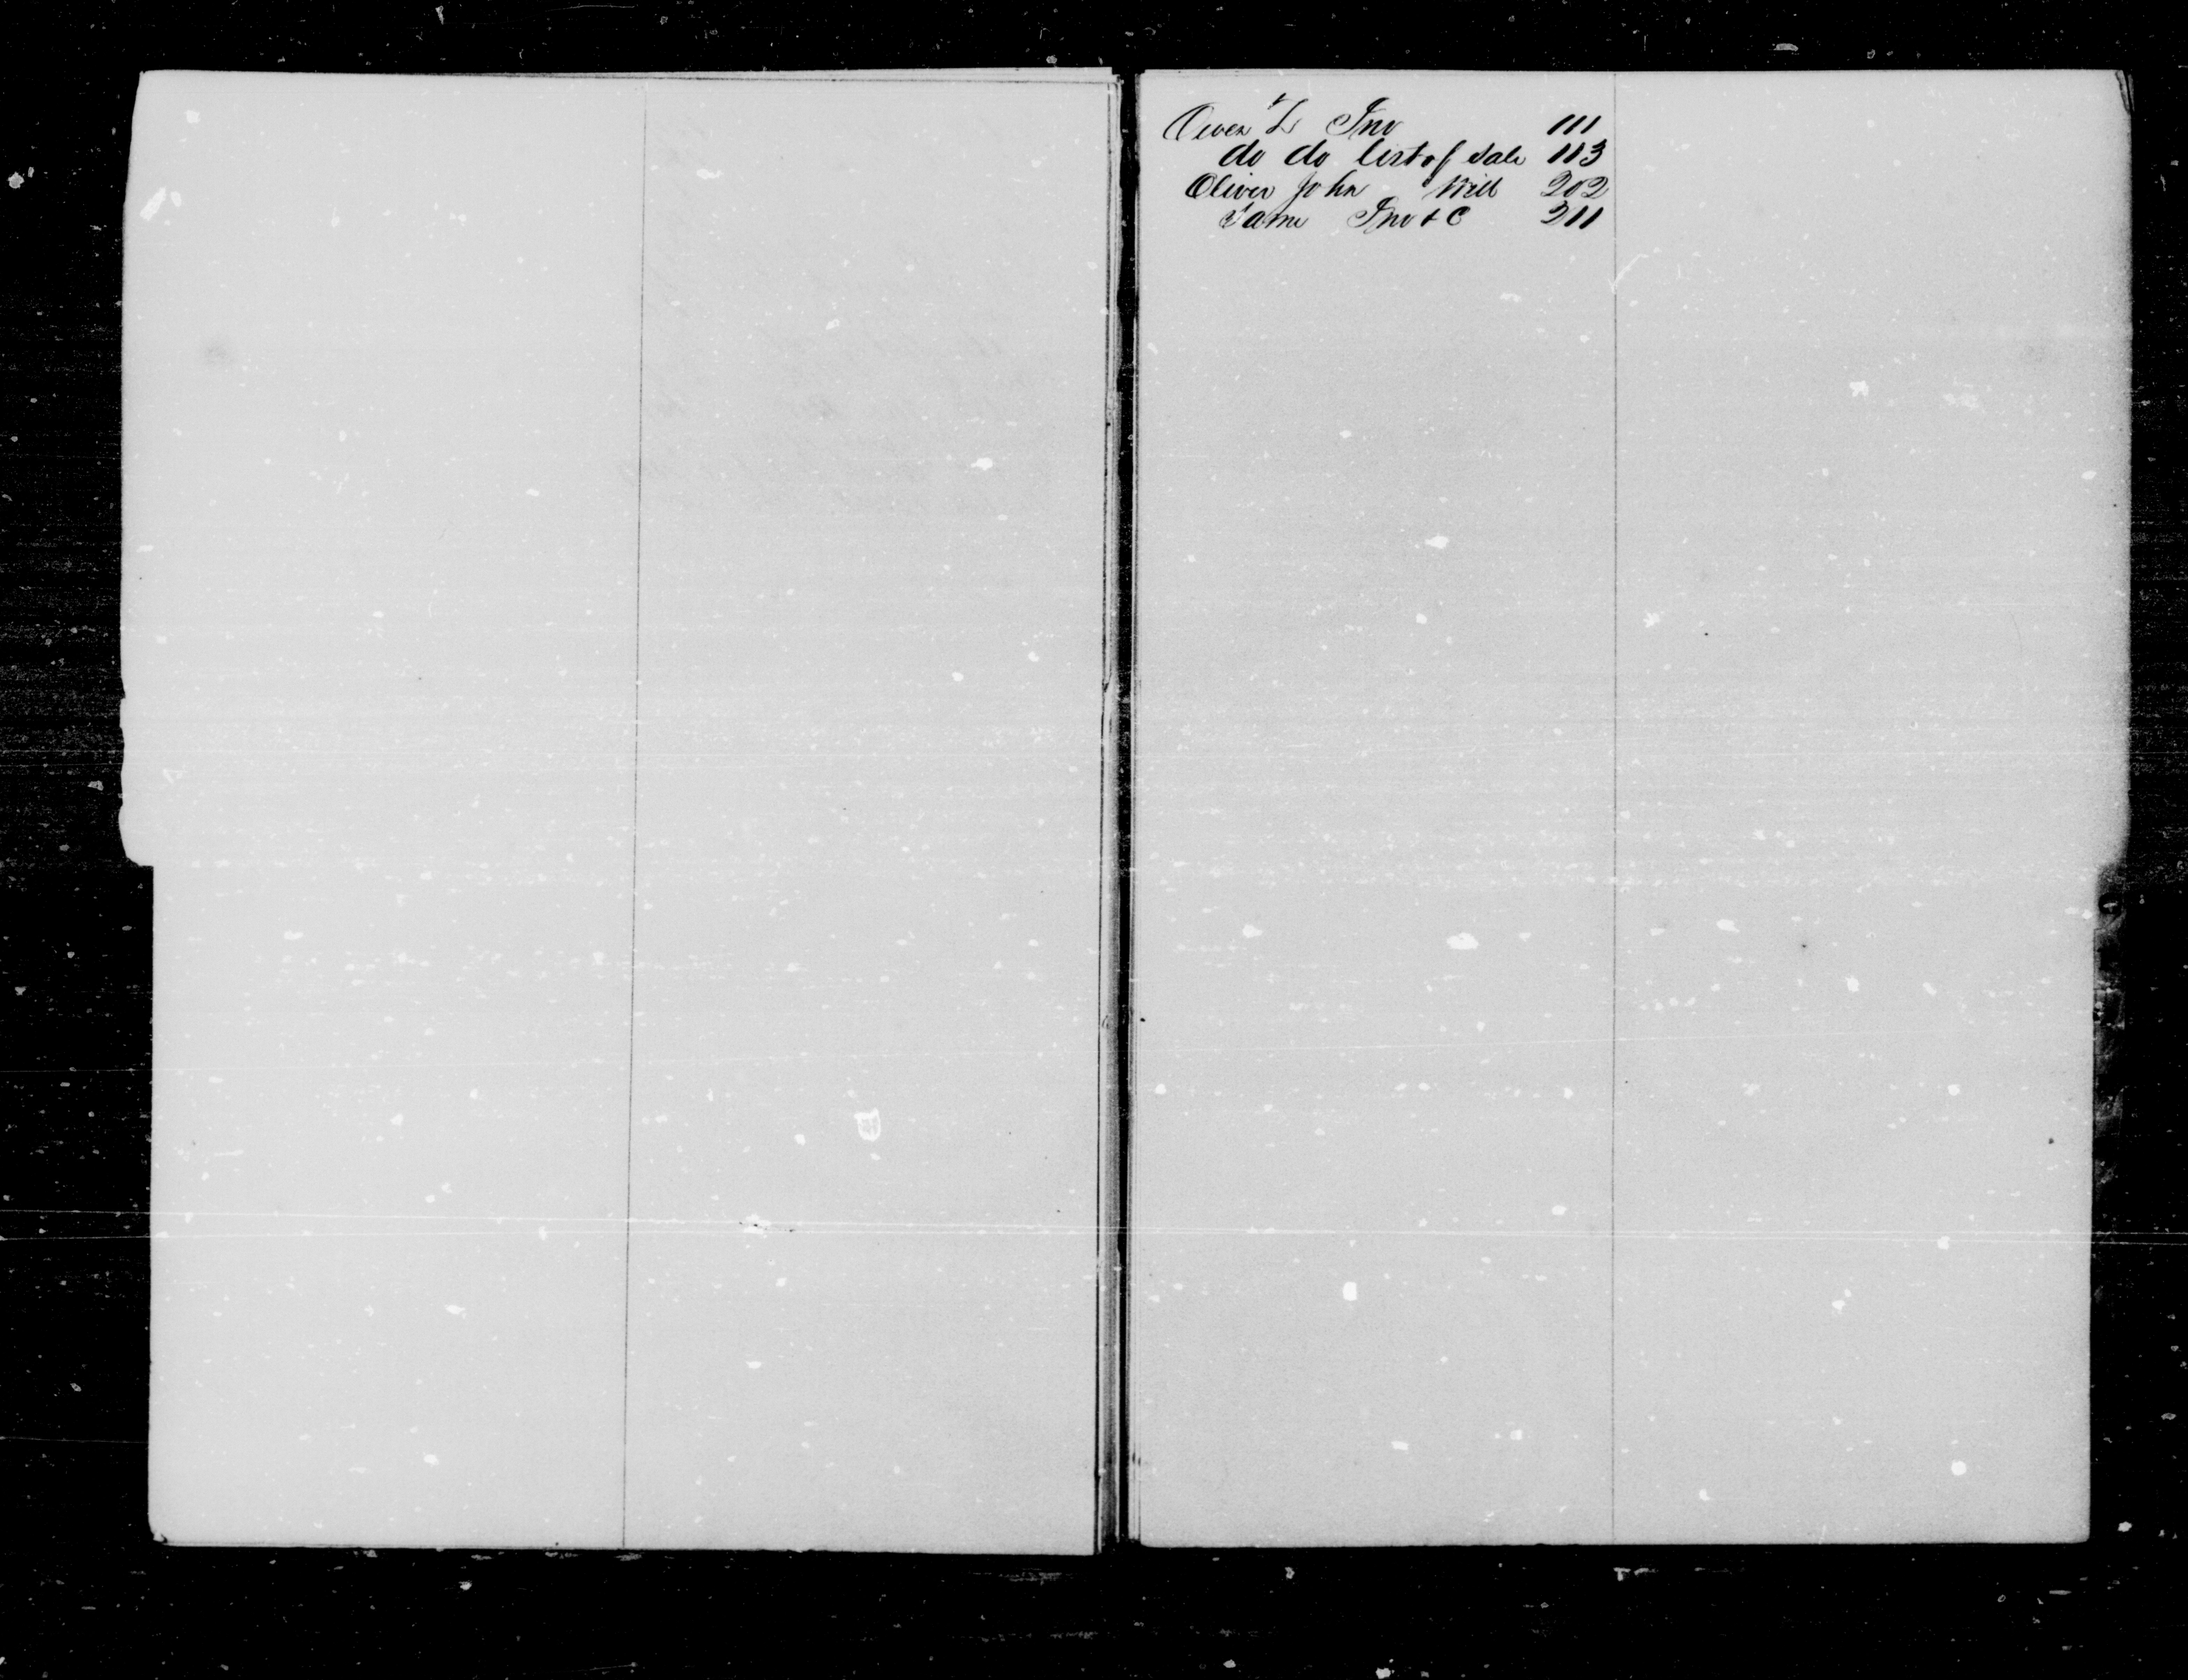 Owen L Inv 111
do do list of sale 113
Oliver John Will 202
Same Inv & C 211